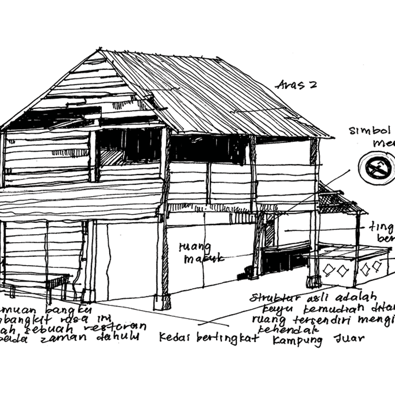 Aras 2
Simbol
me
ting
ber
ruang
masuk
muan bangku
bangkit rasa ini
ah sebuah restoran
pada zaman dahulu
Struktur asli adalah
kayu kemudian dita
ruang tersendiri mengi
kehendak
Kedai bertingkat Kampung Juar